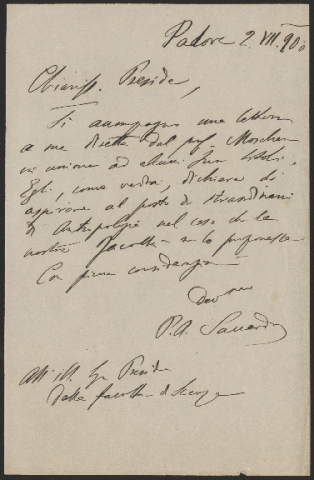 Padova 2. VII. 900
Chiariss. Preside,
Ti accompagno una lettera
a me diretta dal prof. Moschen
in unione ad alcuni suoi titoli,
Egli, come vedrai, dichiara di
aspirare al posto di straordinario
di Antropologia nel caso che la
nostra Facoltà lo proponesse
Con piena considerazione
Dev.mo
P. A. Saccardo
All' Ill. Sig. Preside
della facoltà di Scienze